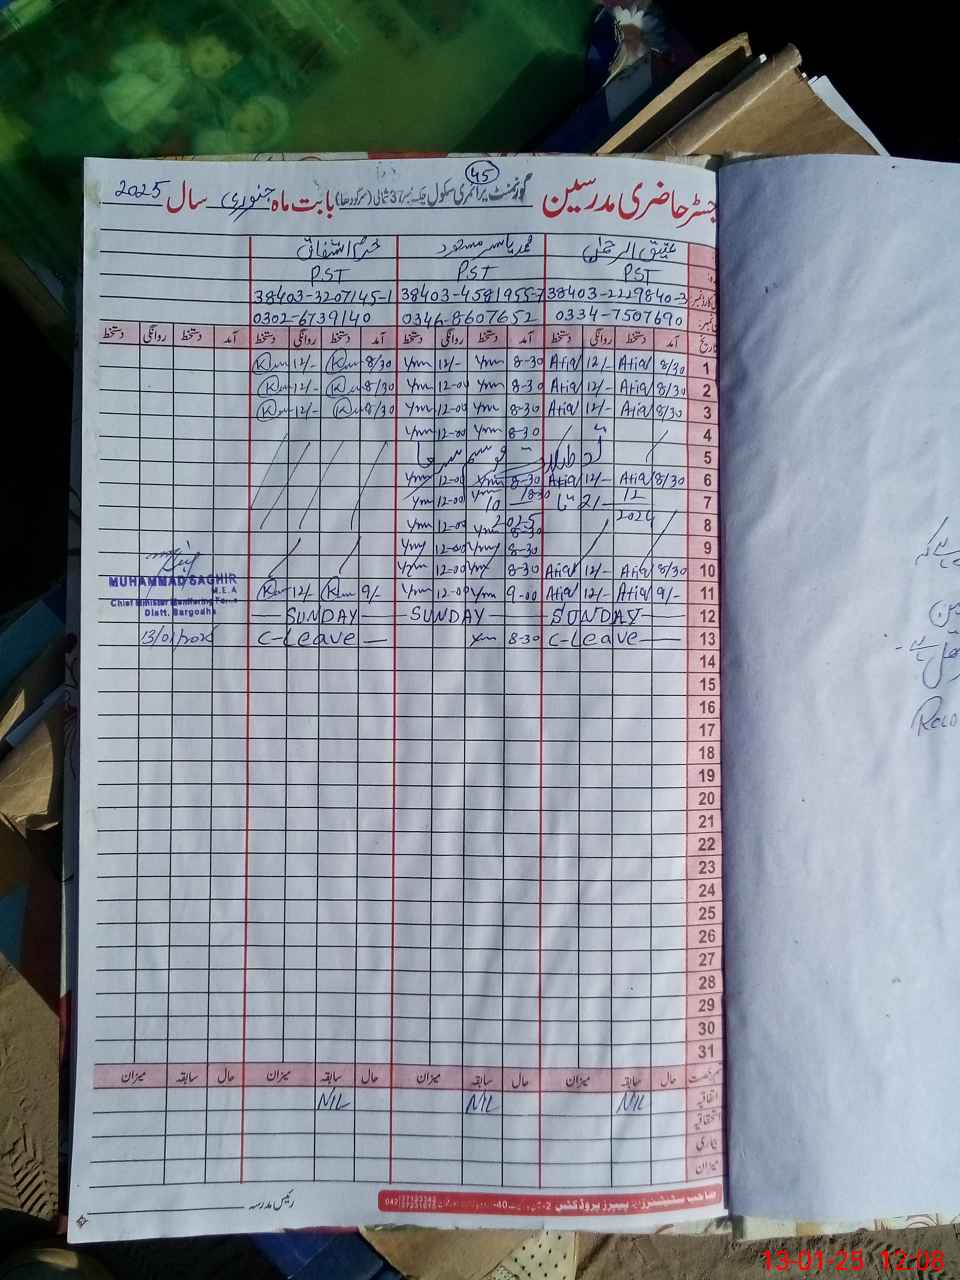 45
رجسٹر حاضری مدرسین گورنمنٹ پرائمری سکول چک نمبر 37 شمالی (سرگودھا) بابت ماہ جنوری سال 2025
عتیق الرحمٰن محمد یاسر مسعود خرم اشفاق
PST PST PST
38403-2229840-3 38403-4581955-7 38403-3207145-1
0334-7507690 0346-8607652 0302-6739140
تاریخ آمد دستخط روانگی دستخط آمد دستخط روانگی دستخط آمد دستخط روانگی دستخط آمد دستخط روانگی دستخط
1 8/30 Atiq 12/- Atiq 8-30 Ymm 12/- Ymm 8/30 K 12/- K
2 8/30 Atiq 12/- Atiq 8-30 Ymm 12-00 Ymm 8/30 K 12/- K
3 8/30 Atiq 12/- Atiq 8-30 Ymm 12-00 Ymm 8/30 K 12/- K
4 8-30 Ymm 12-00 Ymm
5
6 8/30 Atiq 12/- Atiq 8-30 Ymm 12-00 Ymm
7 12-00 Ymm
2024
8 2025 8-30 Ymm 12-00 Ymm
9 8-30 Ymm 12-00 Ymm
10 8/30 Atiq 12/- Atiq 8-30 Ymm 12-00 Ymm
11 9/- Atiq 12/- Atiq 9-00 Ymm 12-00 Ymm 9/- K 12/- K
MUHAMMAD SAGHIR
M.E.A
Chief Minister Monitoring Force
Distt. Sargodha
12 SUNDAY SUNDAY SUNDAY
13 C-Leave 8-30 Ymm C-Leave 13/01/2025
14
15
16
17
18
19
20
21
22
23
24
25
26
27
28
29
30
31
حال سابقہ میزان حال سابقہ میزان حال سابقہ میزان حال سابقہ میزان
اتفاقیہ NIL NIL NIL
استحقاقیہ
بیماری
میزان
رئیس مدرسہ
13-01-25 12:08